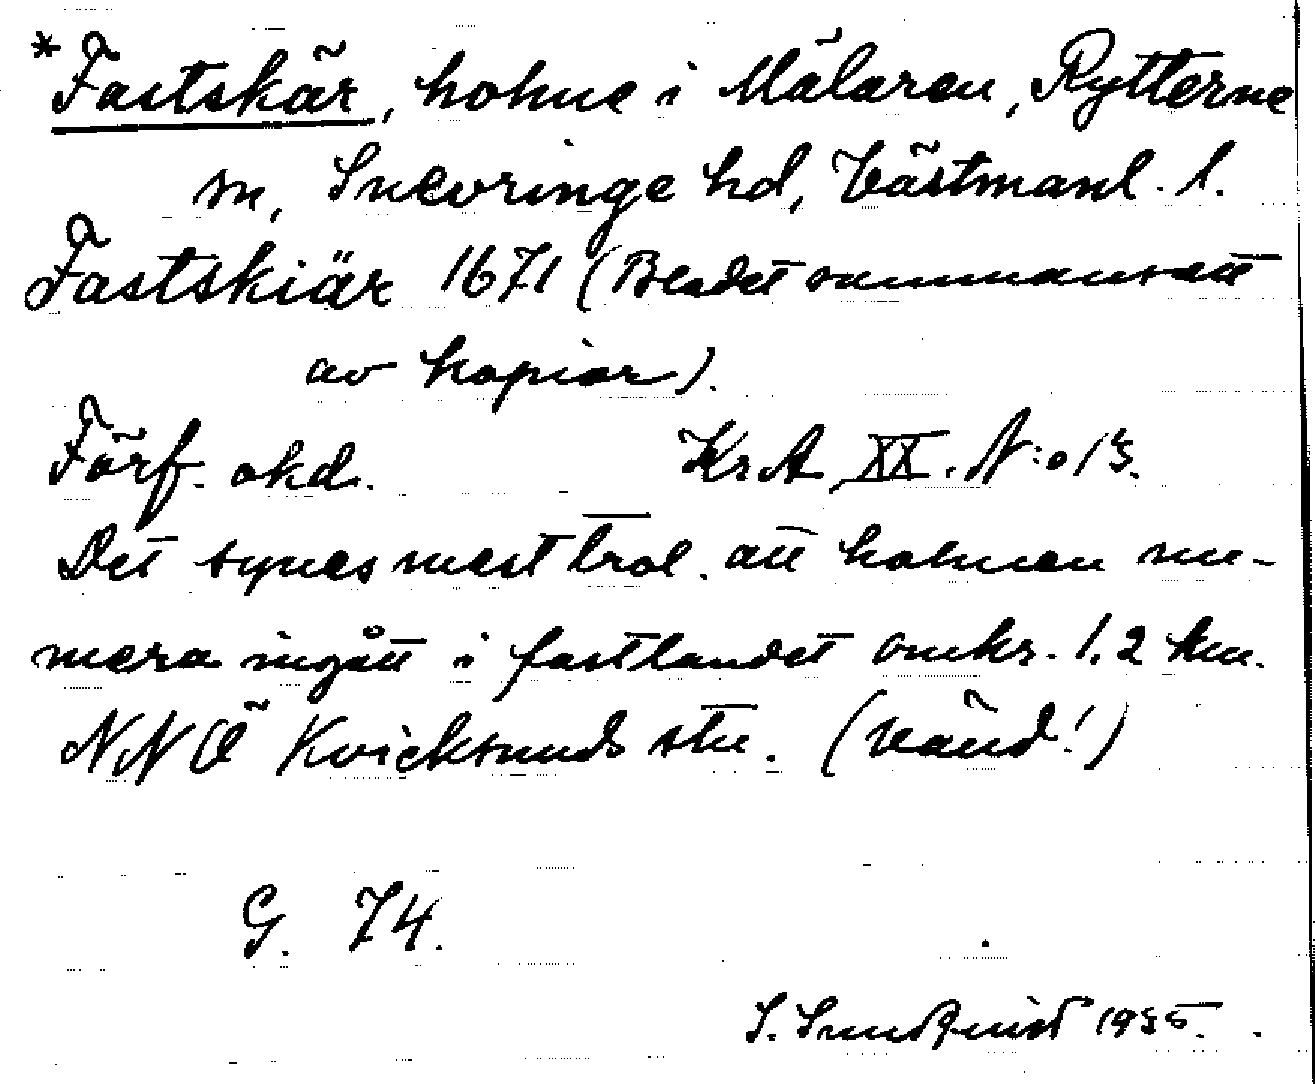 *Fastskär, holme i Mälaren, Rytterne
sn, Snevringe hd, Västmanl. l.
Fastskiär 1671 (Bladet sammansatt
av kopior).
Förf. okd. KrA, XX. N:o 13.
Det synes mest trol. att holmen nu-
mera ingått i fastlandet omkr. 1.2 km.
NNÖ Kvicksunds stn. (Vänd!)
G. 74.
S. Sundquist 1935.